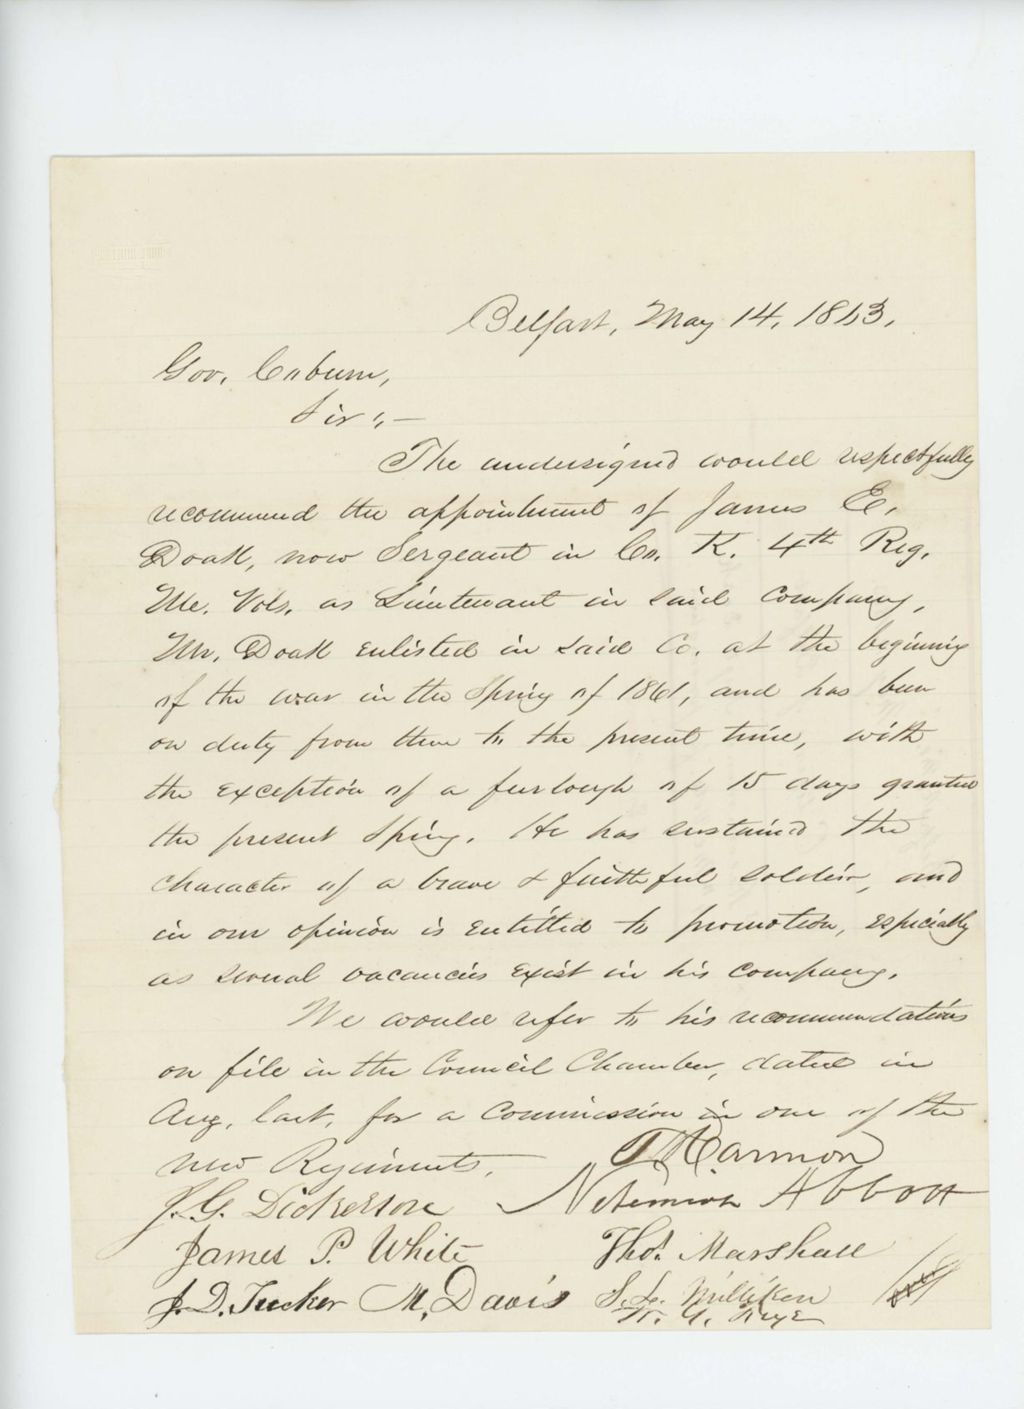 Belfast, May 14, 1863.
Gov. Coburn,
Sir:-
The undersigned would respectfully
recommend the appointment of James E.
Doak, now Sergeant in Co. K. 4th Reg.
Me. Vols. as Lieutenant in said Company,
Mr. Doak enlisted in said Co. at the beginning
of the war in the Spring of 1861, and has been
on duty from then to the present time, with
the exception of a furlough of 15 days granted
the present Spring. He has sustained the
character of a brave & faithful soldier, and
in our opinion is entitled to promotion, especially
as several vacancies exist in his company.
We would refer to his recommendations
on file in the Council Chamber, dated in
Aug. last, for a Commission in one of the
new Regiments.
Harmon
J. G. Dickerson
Nehemiah Abbott
James P. White
Thos. Marshall
J. D. Tucker
M. Davis
S. L. Milliken